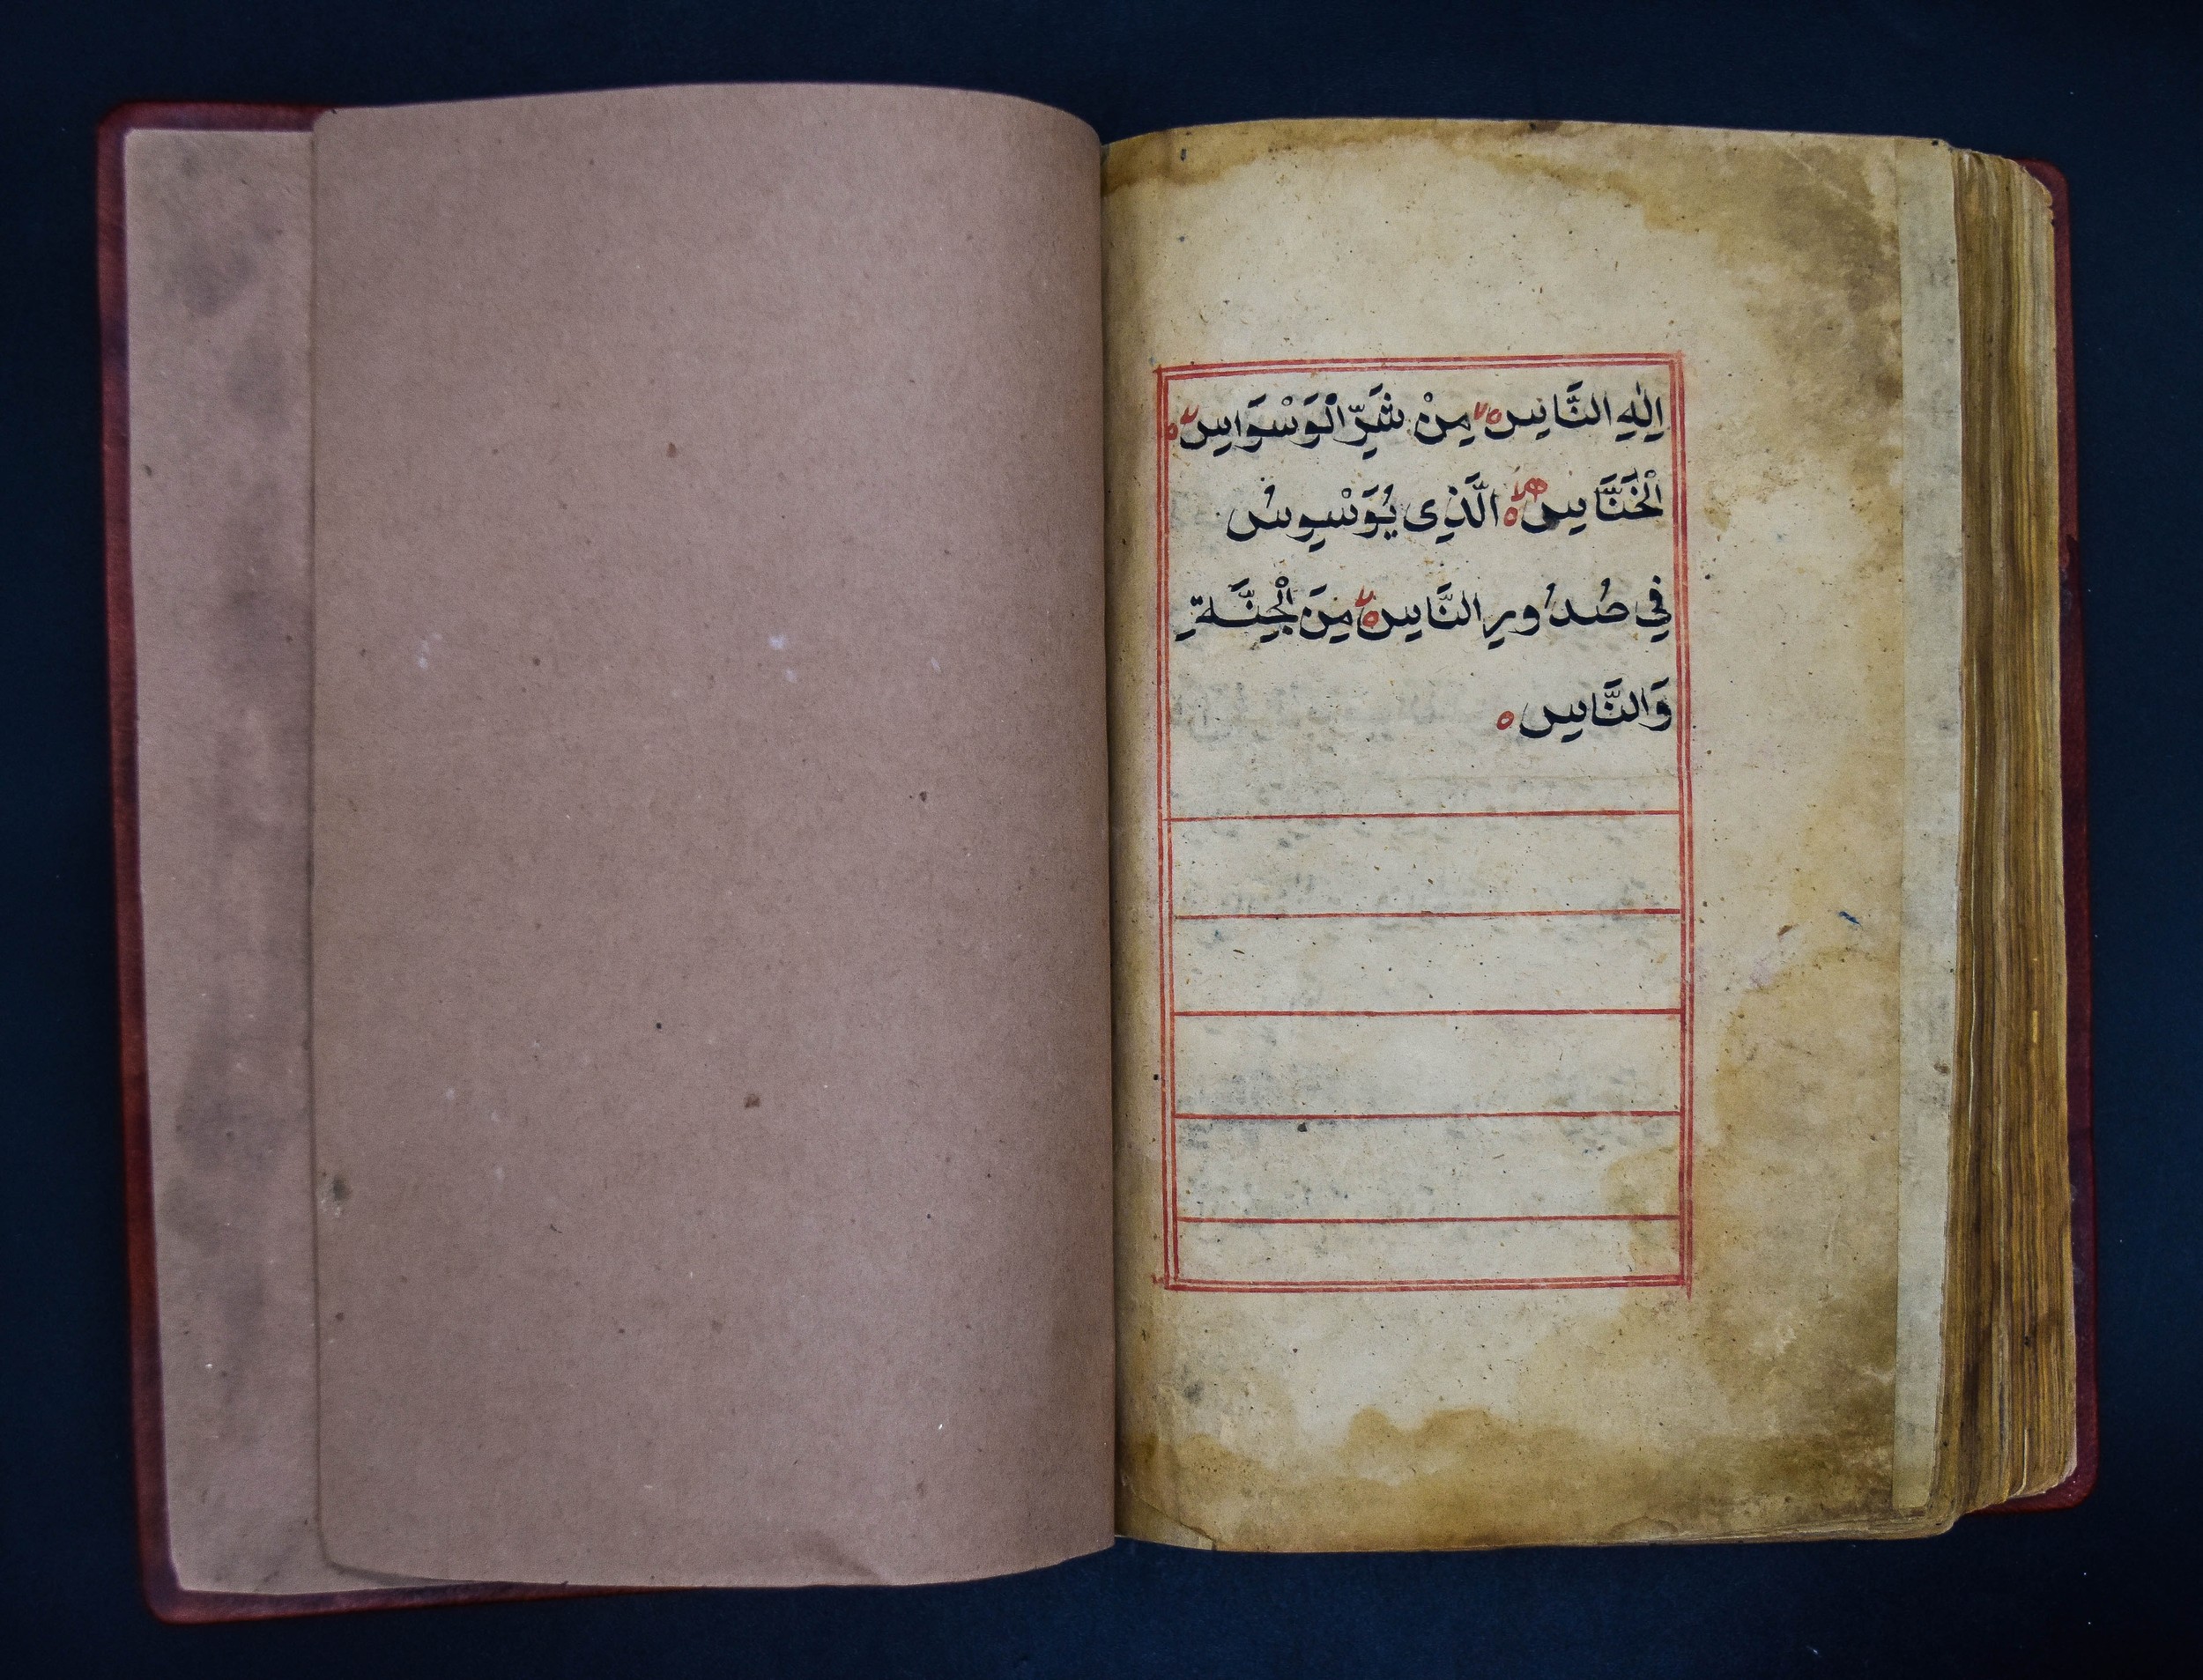 اِلٰهِ النَّاسِ ۵ مِنْ شَرِّ الْوَسْوَاسِ ۵
الْخَنَّاسِ ۵ الَّذِی یُوَسْوِسُ
فِی صُدُورِ النَّاسِ ۵ مِنَ الْجِنَّةِ
وَالنَّاسِ ۵